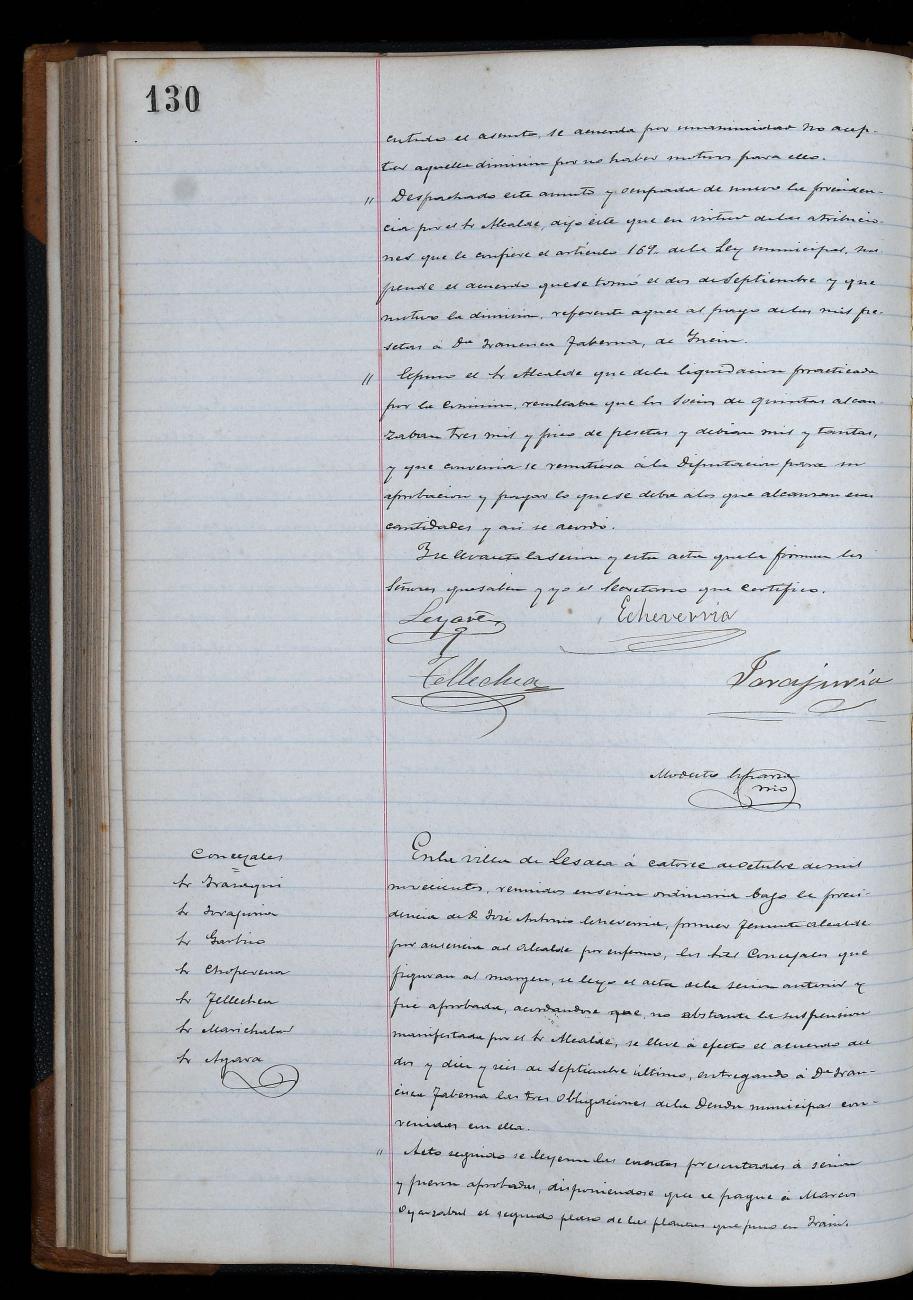 130
cutido el asunto, se acuerda por unanimidad no acep-
tar aquella dimision por no haber motivos para ello.
" Despachado este asunto y ocupada de nuevo la presiden-
cia por el Sr Alcalde, dijo éste que en virtud de las atribucio-
nes que le confiere el artículo 169 de la Ley municipal, sus
pende el acuerdo que se tomó el dos de Septiembre y que
motivo la dimision, referente aquel al pago de las mil pe-
setas á Da Francisca Taberna, de
" Espuso el Sr Alcalde que de la liquidacion practicada
por la Comision, resultaba que los Socios de quintas alcan
zaban tres mil y pico de pesetas y debian mil y tantas,
y que convenia se remitiera á la Diputacion para su
aprobacion y pagar lo que se debe a los que alcanzan sus
cantidades y asi se acordó.
Se levanta la sesion y esta acta que la firman los
Señores que saben y yo el Secretario que certifico.
Echeverria
Tellechea
Modesto
Concejales
En la villa de Lesaca á catorce de Octubre de mil
Sr
novecientos, reunidos en sesion ordinaria bajo la presi-
Sr
dencia de D José Antonio Echeverria, primer Teniente Alcalde
Sr
por ausencia del Alcalde por enfermo, los Sres Concejales que
Sr Choperena
figuran al margen, se leyó el acta de la sesion anterior y
Sr Tellechea
fue aprobada, acordandose que, no obstante la suspension
Sr Marichalar
manifestada por el Sr Alcalde, se lleve á efecto el acuerdo del
Sr
dos y diez y seis de Septiembre último, entregando á Da Fran-
cisca Taberna las tres Obligaciones de la Deuda municipal con-
venidas con ella.
" Acto seguido se leyeron las cuentas presentadas á sesion
y fueron aprobadas, disponiendose que se pague á Marcos
Oyarzabal el segundo plazo de las plantas que puso en